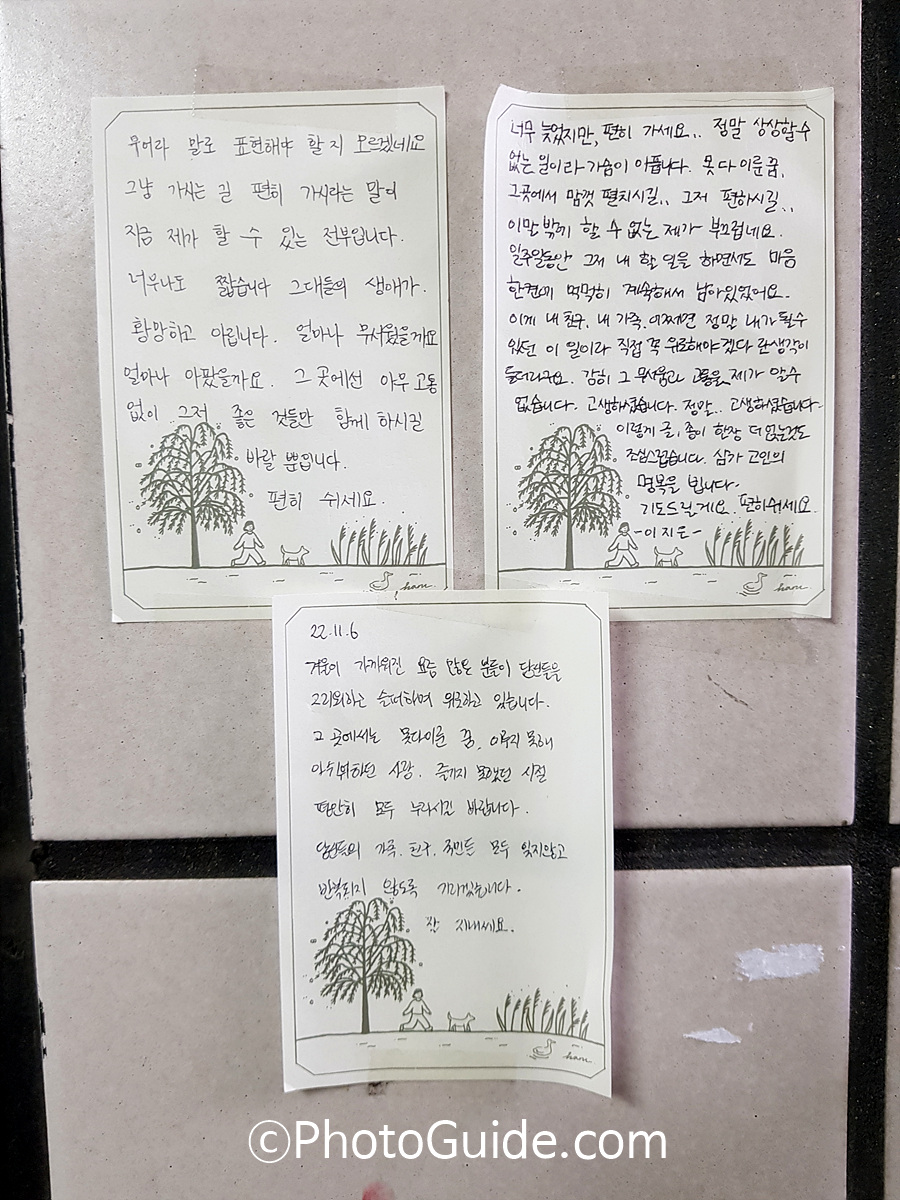 무어라 말로 표현해야 할 지 모르겠네요
그냥 가시는 길 편히 가시라는 말이
지금 제가 할 수 있는 전부입니다.
너무나도 짧습니다 그대들의 생애가.
황망하고 아립니다. 얼마나 무서웠을까요
얼마나 아팠을까요. 그 곳에선 아무 고통
없이 그저 좋은 것들만 함께 하시길
바랄 뿐입니다.
편히 쉬세요.
haru
너무 늦었지만, 편히 가세요.. 정말 상상할 수
없는 일이라 가슴이 아픕니다. 못 다 이룬 꿈,
그곳에서 맘껏 펼치시길.. 그저 편하시길..
이만 밖에 할 수 없는 제가 부끄럽네요.
일주일동안 그저 내 할 일을 하면서도 마음
한켠에 먹먹히 계속해서 남아있었어요.
이게 내 친구, 내 가족, 어쩌면 정말 내가 될 수
있던 이 일이라 직접 꼭 위로해야겠다 란 생각이
들더라구요. 감히 그 무서움과 고통을 제가 알 수
없습니다. 고생하셨습니다. 정말.. 고생하셨습니다-
이렇게 글, 종이 한장 더 얹는것도
조심스럽습니다. 삼가 고인의
명복을 빕니다.
기도드릴게요. 편히쉬세요.
-이지은-
haru
22.11.6
겨울이 가까워진 요즘 많은 분들이 당신들을
그리워하고 슬퍼하며 위로하고 있습니다.
그 곳에서는 못다이룬 꿈, 이루지 못해
아쉬워하던 사랑, 즐기지 못했던 시절
편안히 모두 누리시길 바랍니다.
당신들의 가족, 친구, 국민들 모두 잊지않고
반복되지 않도록 기리겠습니다.
잘 지내세요.
haru
©PhotoGuide.com